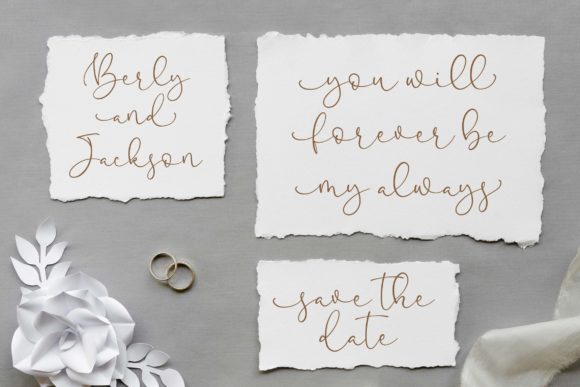 Berly
and
Jackson
you will
forever be
my always
save the
date